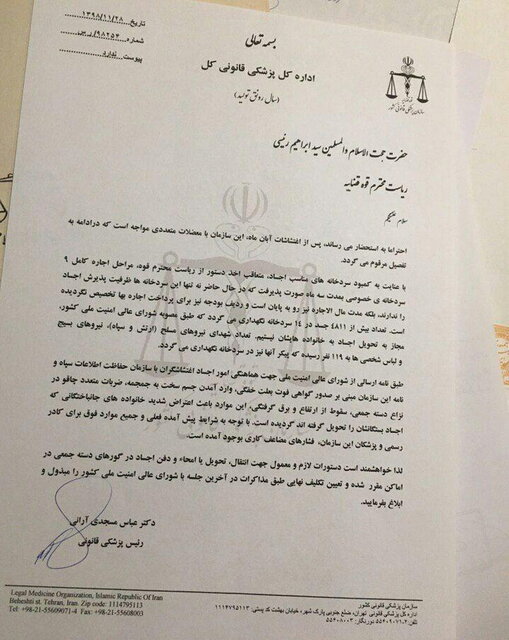 بسمه تعالی
تاریخ ۱۳۹۸/۱۱/۲۸
شماره ۹۸۲۵۴/ر.ص
پیوست ندارد
اداره کل پزشکی قانونی کل
(سال رونق تولید)
سازمان پزشکی قانونی کشور
حضرت حجت الاسلام والمسلمین سید ابراهیم رئیسی
ریاست محترم قوه قضائیه
سلام علیکم
احتراما به استحضار می رساند، پس از اغتشاشات آبان ماه، این سازمان با معضلات متعددی مواجه است که درادامه به
تفصیل مرقوم می گردد.
با عنایت به کمبود سردخانه های مناسب اجساد، متعاقب اخذ دستور از ریاست محترم قوه، مراحل اجاره کامل ۹
سردخانه ی خصوصی بمدت سه ماه صورت پذیرفت که در حال حاضر نه تنها این سردخانه ها ظرفیت پذیرش اجساد
را ندارند، بلکه مدت مال الاجاره نیز رو به پایان است و ردیف بودجه نیز برای پرداخت اجاره بها تخصیص نگردیده
است. تعداد بیش از ۴۸۱۱ جسد در ۱۴ سردخانه نگهداری می گردد که طبق مصوبه شورای عالی امنیت ملی کشور،
مجاز به تحویل اجساد به خانواده هایشان نیستیم. تعداد شهدای نیروهای مسلح (ارتش و سپاه)، نیروهای بسیج
و لباس شخصی ها به ۱۱۹ نفر رسیده که پیکر آنها نیز در سردخانه نگهداری می گردد.
طبق نامه ارسالی از شورای عالی امنیت ملی جهت هماهنگی امور اجساد اغتشاشگران با سازمان حفاظت اطلاعات سپاه و
نامه این سازمان مبنی بر صدور گواهی فوت بعلت خفگی، وارد آمدن جسم سخت به جمجمه، ضربات متعدد چاقو در
نزاع دسته جمعی، سقوط از ارتفاع و برق گرفتگی، این موارد باعث اعتراض شدید خانواده های جانباختگانی که
اجساد بستگانشان را تحویل گرفته اند گردیده است. با توجه به شرایط پیش آمده فعلی و جمیع موارد فوق برای کادر
رسمی و پزشکان این سازمان، فشارهای مضاعف کاری بوجود آمده است.
لذا خواهشمند است دستورات لازم و معمول جهت انتقال، تحویل یا امحاء و دفن اجساد در گورهای دسته جمعی در
اماکن مقرر شده و تعیین تکلیف نهایی طبق مذاکرات در آخرین جلسه با شورای عالی امنیت ملی کشور را مبذول و
ابلاغ بفرمایید.
دکتر عباس مسجدی آرانی
رئیس پزشکی قانونی
Legal Medicine Organization, Islamic Republic Of Iran
Beheshti st. Tehran, Iran. Zip code: 1114795113
Tel: +98-21-55609071-4 Fax: +98-21-55608003
سازمان پزشکی قانونی کشور
اداره کل پزشکی قانونی تهران، ضلع جنوبی پارک شهر، خیابان بهشت کد پستی: ۱۱۱۴۷۹۵۱۱۳
تلفن: ۴-۵۵۶۰۹۰۷۱ دورنگار: ۵۵۶۰۸۰۰۳